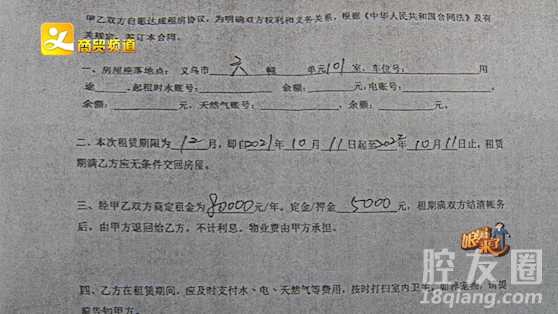 商贸频道
甲乙双方自愿达成租房协议，为明确双方权利和义务关系，根据《中华人民共和国合同法》及有
关规定，签订本合同。
一、房屋座落地点：义乌市 幢 单元101室，车位号： 用
途 .起租时水账号： 余额： 元,电账号： ，
余额： 元，天然气账号： ，余额： 元。
二、本次租赁期限为12月，即自2021年10月11日起至2022年10月11日止，租赁
期满乙方应无条件交回房屋。
三、经甲乙双方商定租金为80000元/年。定金/押金5000元，租期满双方结清帐务
后，由甲方退回给乙方，不计利息，物业费由甲方承担。
娘舅来了
四、乙方在租赁期间，应及时支付水、电、天然气等费用，按时打扫室内卫生，如养宠物，请提
前告知甲方。
腔友圈
18qiang.com